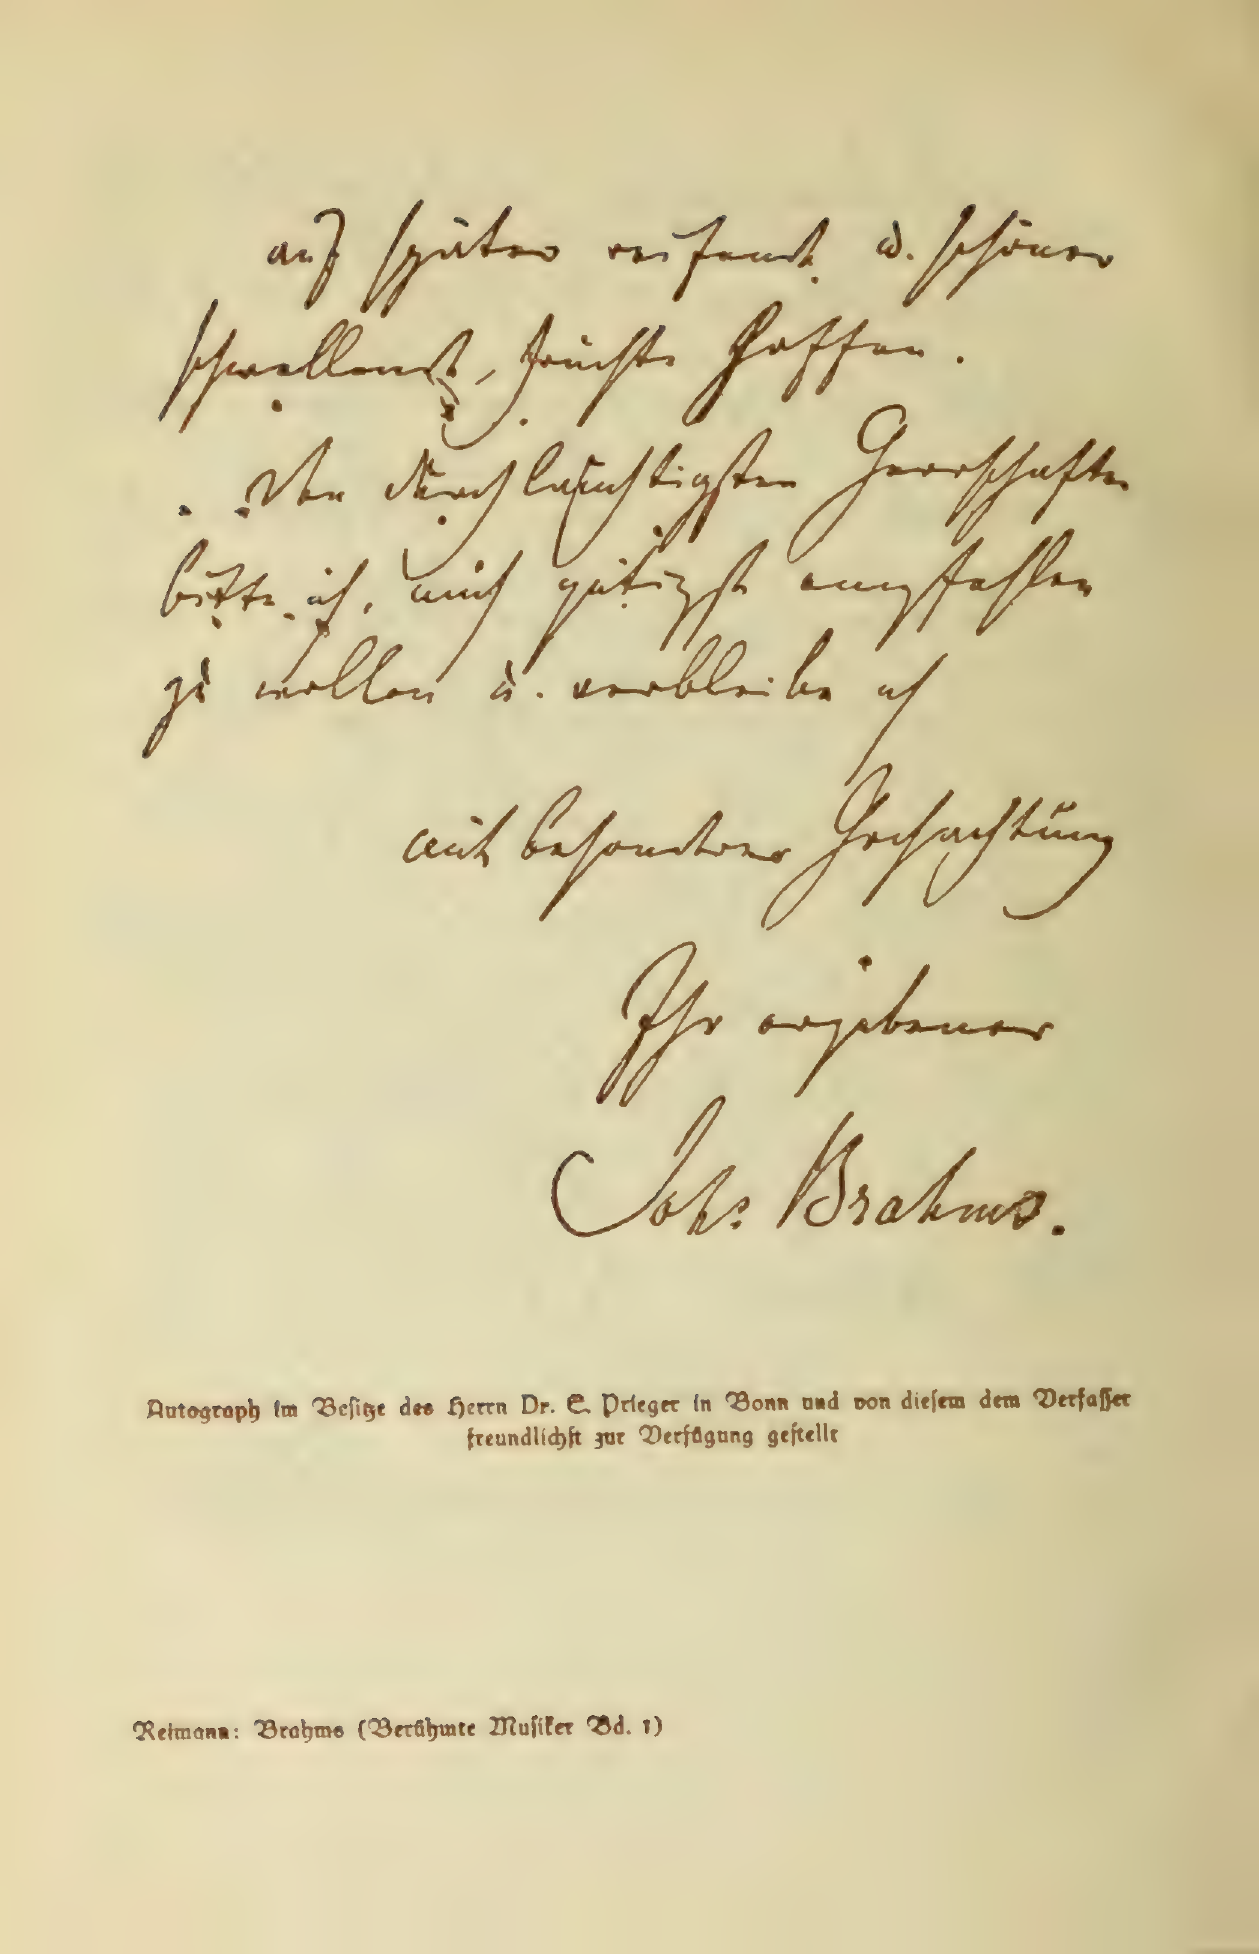 auf später reifende u. schöner
schwellende Früchte hoffen.
Den durchlauchtigsten Herrschaften
bitte ich, mich gütigst empfehlen
zu wollen u. verbleibe ich
mit besondrer Hochachtung
Ihr ergebener
Johs. Brahms.
Autograph im Besitze des Herrn Dr. E. Prieger in Bonn und von diesem dem Verfasser
freundlichst zur Verfügung gestellt
Reimann: Brahms (Berühmte Musiker Bd. 1)